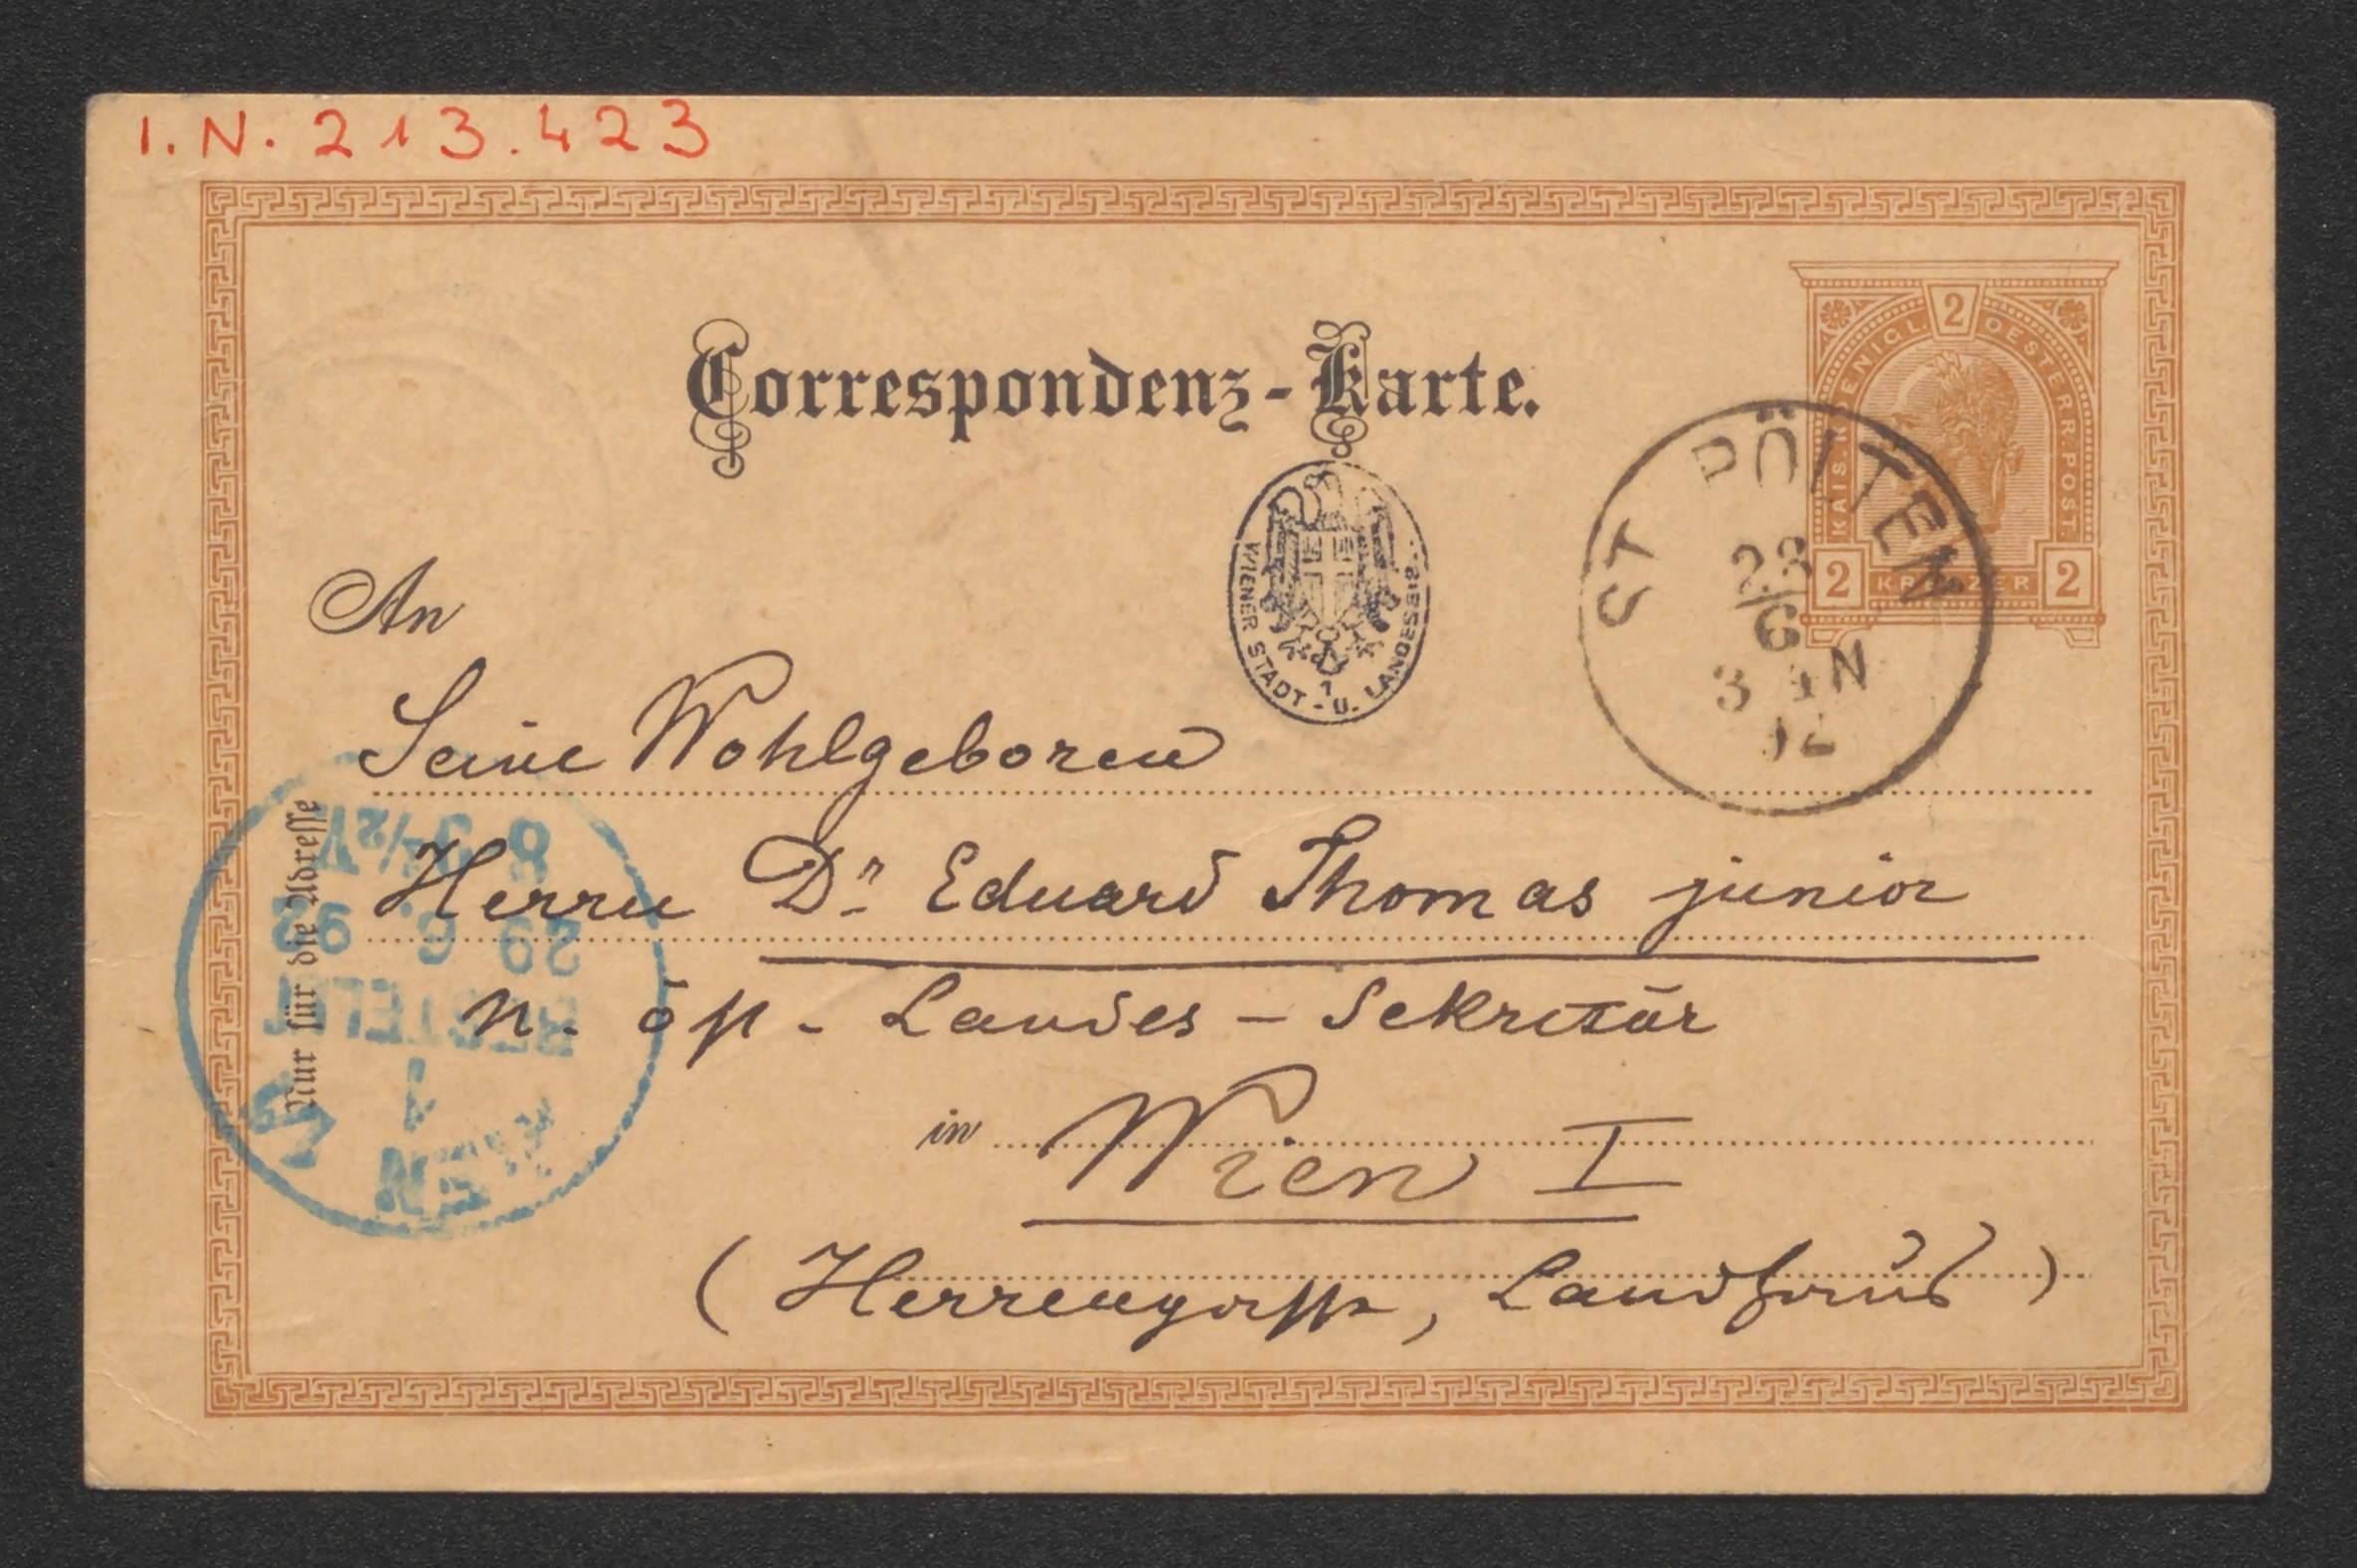 I.N. 213.423
Correspondenz-Karte.
2
KAIS. KOENIGL. OESTERR. POST.
2 KREUZER 2
ST PÖLTEN
WIENER STADT- U. LANDESBIB
An
Seine Wohlgeboren
Herrn Dr Eduard Thomas junior
n. öst. Landes-Sekretär
in Wien I
(Herrengasse, Landhaus)
Nur für die Adresse
WIEN
1
BESTELLT
29 6. 92
8-9½V